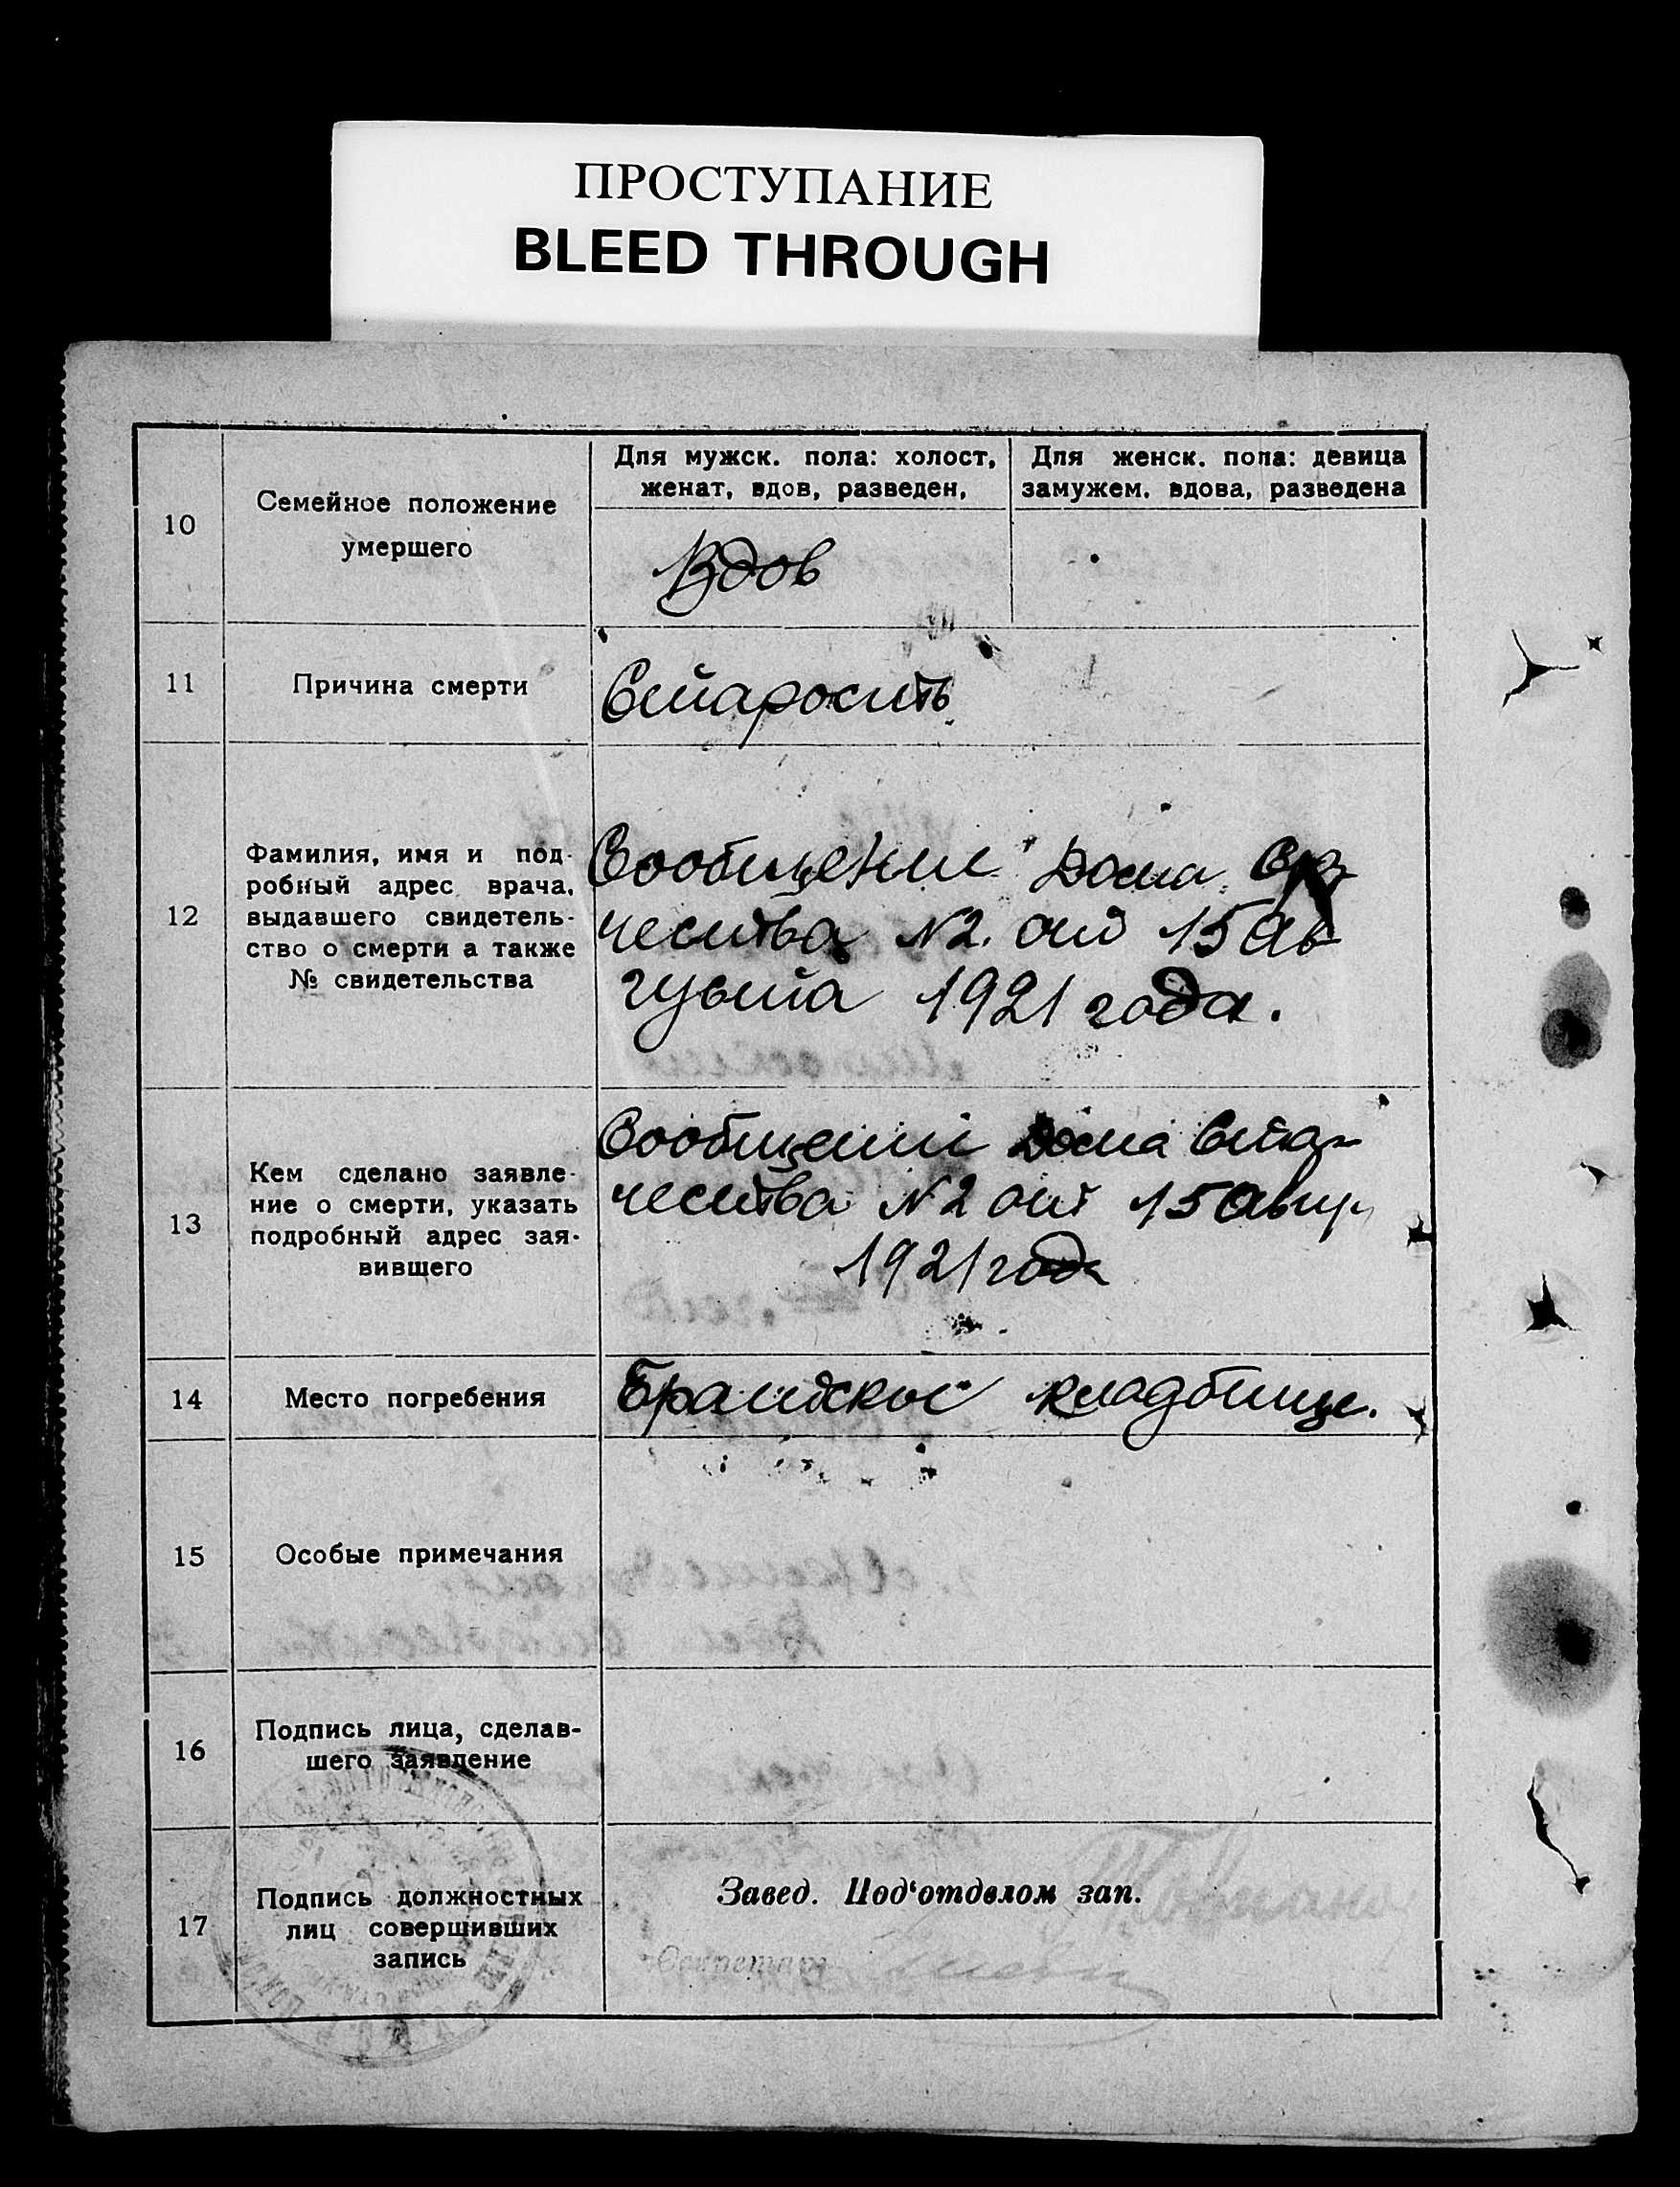 ПРОСТУПАНИЕ
BLEED THROUGH
Для мужск. пола: холост,
женат, вдов, разведен,
Для женск. пола: девица
замужем, вдова, разведена
10
Семейное положение
умершего
Вдов
11
Причина смерти
Старость
12
Фамилия, имя и под-
робный адрес врача,
выдавшего свидетель-
ство о смерти а также
№ свидетельства
Сообщение Дома
чества №2. от 15 Ав
густа 1921 года.
13
Кем сделано заявле-
ние о смерти, указать
подробный адрес зая-
вившего
Сообщении Дома Ста-
чества №2 от 15 Авгу.
1921 года
14
Место погребения
Братское кладбище.
15
Особые примечания
16
Подпись лица, сделав-
шего заявление
17
Подпись должностных
лиц совершивших
запись
Завед. Под‘отделом зап.
Секретарь